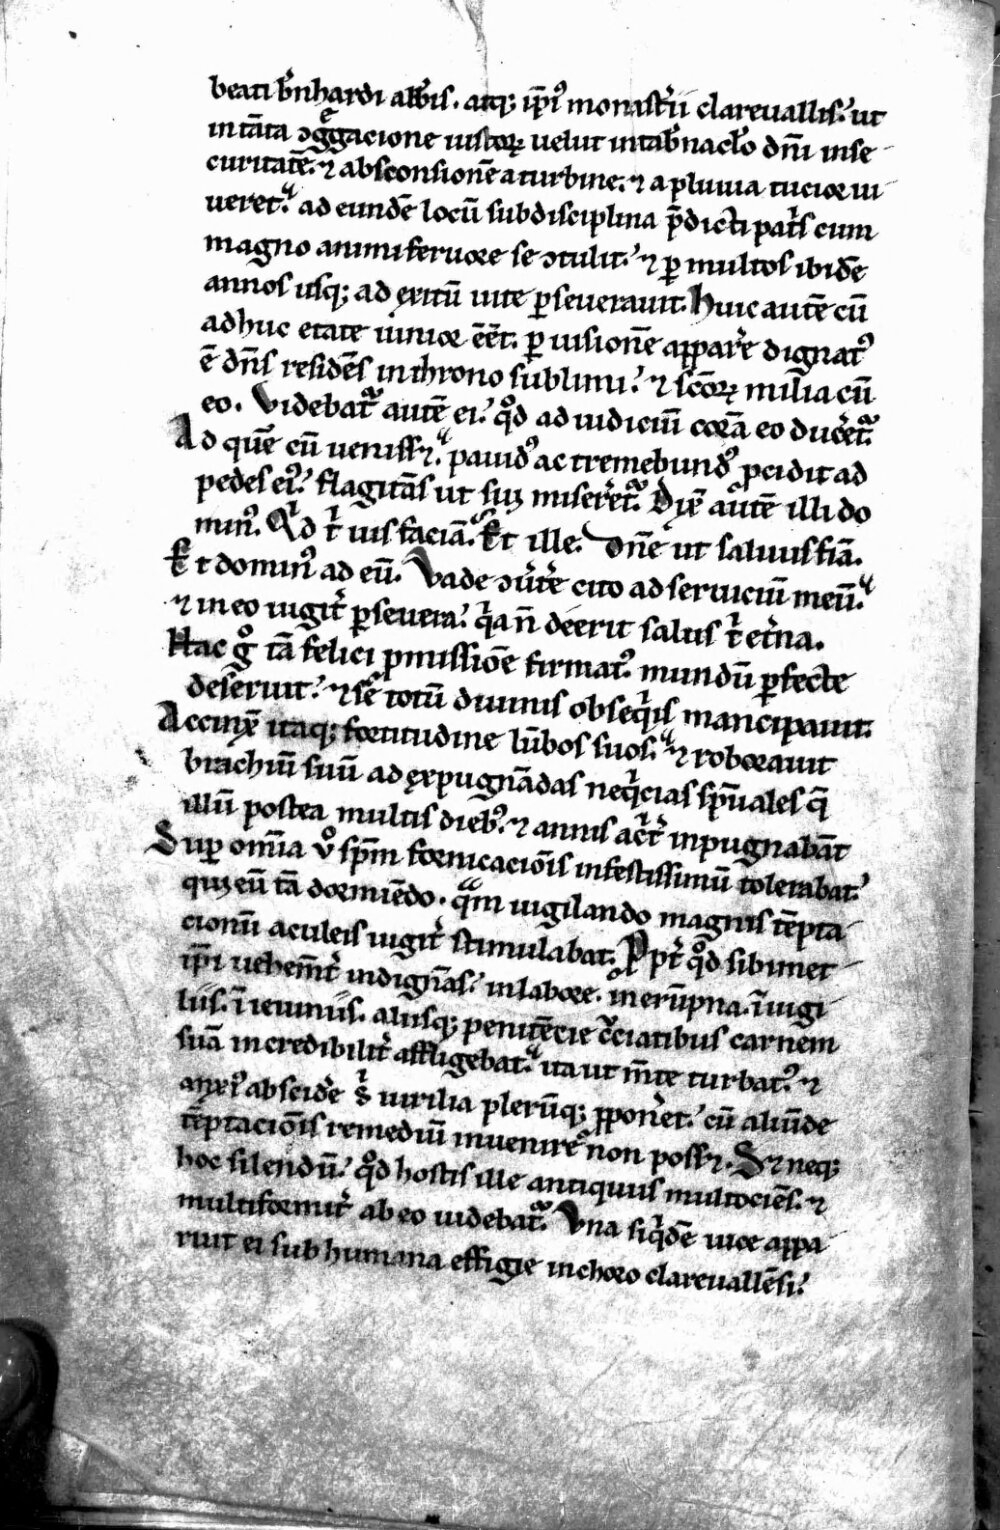 beati b̄nhardi abb̄is. atq; ip̄i' monast̄ii clareuallis. ut
in tāta ɔg̅gacione iustoꝝ uelut in tab̄nac̄lo dn̄i in se
curitatē. ⁊ absconsionē a turbine. ⁊ a pluuia tucior ui
ueret. ad eundē locū sub disciplina p̄dicti pat̄s cum
magno animi feruore se ɔtulit. ⁊ ꝑ multos ibidē
annos usq; ad exitū uite ꝑseuerauit. Huic autē cū
adhuc etate iunior eēt. ꝑ uisionē appar̄e dignat'
ē dn̄s residēs in throno sublimi. ⁊ sc̄oꝝ milia cū
eo. Videbat̄ autē ei. qd̄ ad iudiciū corā eo duc̄et̄.
Ad quē cū uenisset. pauid' ac tremebund' ꝓcidit ad
pedes ei'. flagitās ut sui miser̄et̄. Dixͤ autē illi do
min'. Qid t̄ uis faciā. Et ille. Dn̄e ut saluus fiā.
Et domin' ad eū. Vade ɔu̅te̅ cito ad seruiciū meū.
⁊ in eo iugit̄ ꝑseuera. q̄a n̄ deerit salus t̄ et̄na.
Hac g̊ tā felici ꝓmissiōe firmat' mundū ꝑfecte
deseruit. ⁊ sē totū diuinis obseq̄is mancipauit.
Accinxͤ itaq; fortitudine lūbos suos. ⁊ roborauit
brachiū suū ad expugnādas neq̄cias sp̄uales q̄
illū postea multis dieb'. ⁊ annis ac̄t̄ inpugnabāt
Suꝑ om̄ia v̊ sp̄m fornicaciōis infestissimū tolerabat.
qui eū tā dormiēdo. q̄m uigilando magnis tēpta
cionū aculeis iugit̄ stimulabat. Ꝓpt̄ qd̄ sibimet
ip̄i uehem̄t̄ indignās. in labore. in erūpna. ī uigi
liis. ī ieiuniis. aliisq; penitēcie c̄ciatibus carnem
suā incredibilit̄ affligebat. ita ut m̄te turbat'. ⁊
anxi' abscid̄e s̄ uirilia plerūq; ꝓpon̄et. cū aliūde
tēptaciōis remediū inuenire non posset. Set neq;
hoc silendū. qd̄ hostis ille antiquus multociēs. ⁊
multiformit̄ ab eo uidebat̄. Vna siq̄dē uice appa
ruit ei sub humana effigie in choro clareuallēsi.